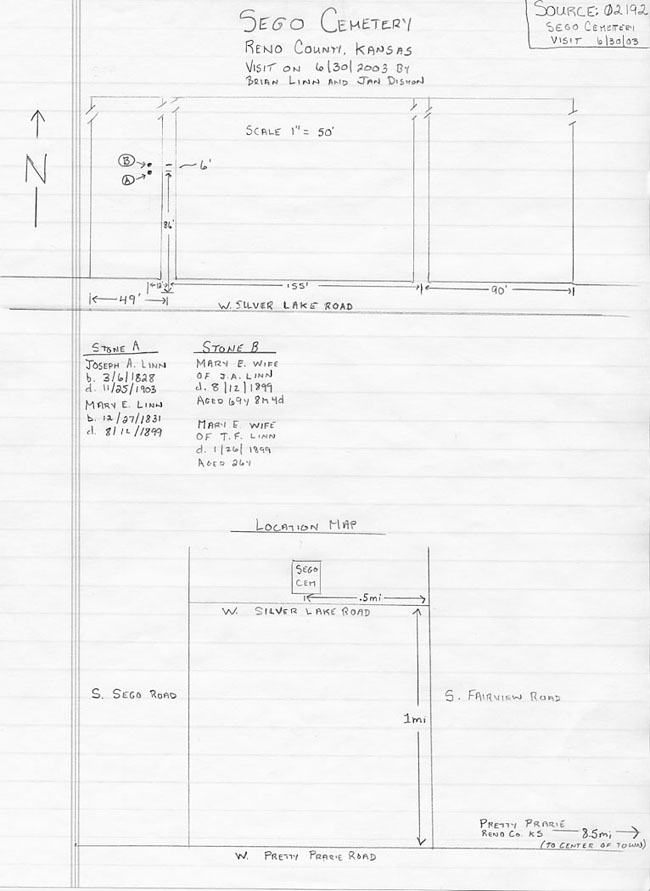 SEGO CEMETERY
RENO COUNTY, KANSAS
VISIT ON 6/30/2003 BY
BRIAN LINN AND JAN DISHON
SOURCE: 02192
SEGO CEMETERY
VISIT 6/30/03
SCALE 1" = 50'
N
B
A
6'
86'
12'
49'
155'
90'
W. SILVER LAKE ROAD
STONE A
JOSEPH A. LINN
b. 3/6/1828
d. 11/25/1903
MARY E. LINN
b. 12/27/1831
d. 8/12/1899
STONE B
MARY E. WIFE
OF J.A. LINN
d. 8/12/1899
AGED 69Y 8M 4d
MARY E. WIFE
OF T.F. LINN
d. 1/26/1899
AGED 26Y
LOCATION MAP
SEGO
CEM
.5mi
W. SILVER LAKE ROAD
S. SEGO ROAD
S. FAIRVIEW ROAD
1mi
PRETTY PRARIE
RENO CO. KS
8.5mi
(TO CENTER OF TOWN)
W. PRETTY PRARIE ROAD